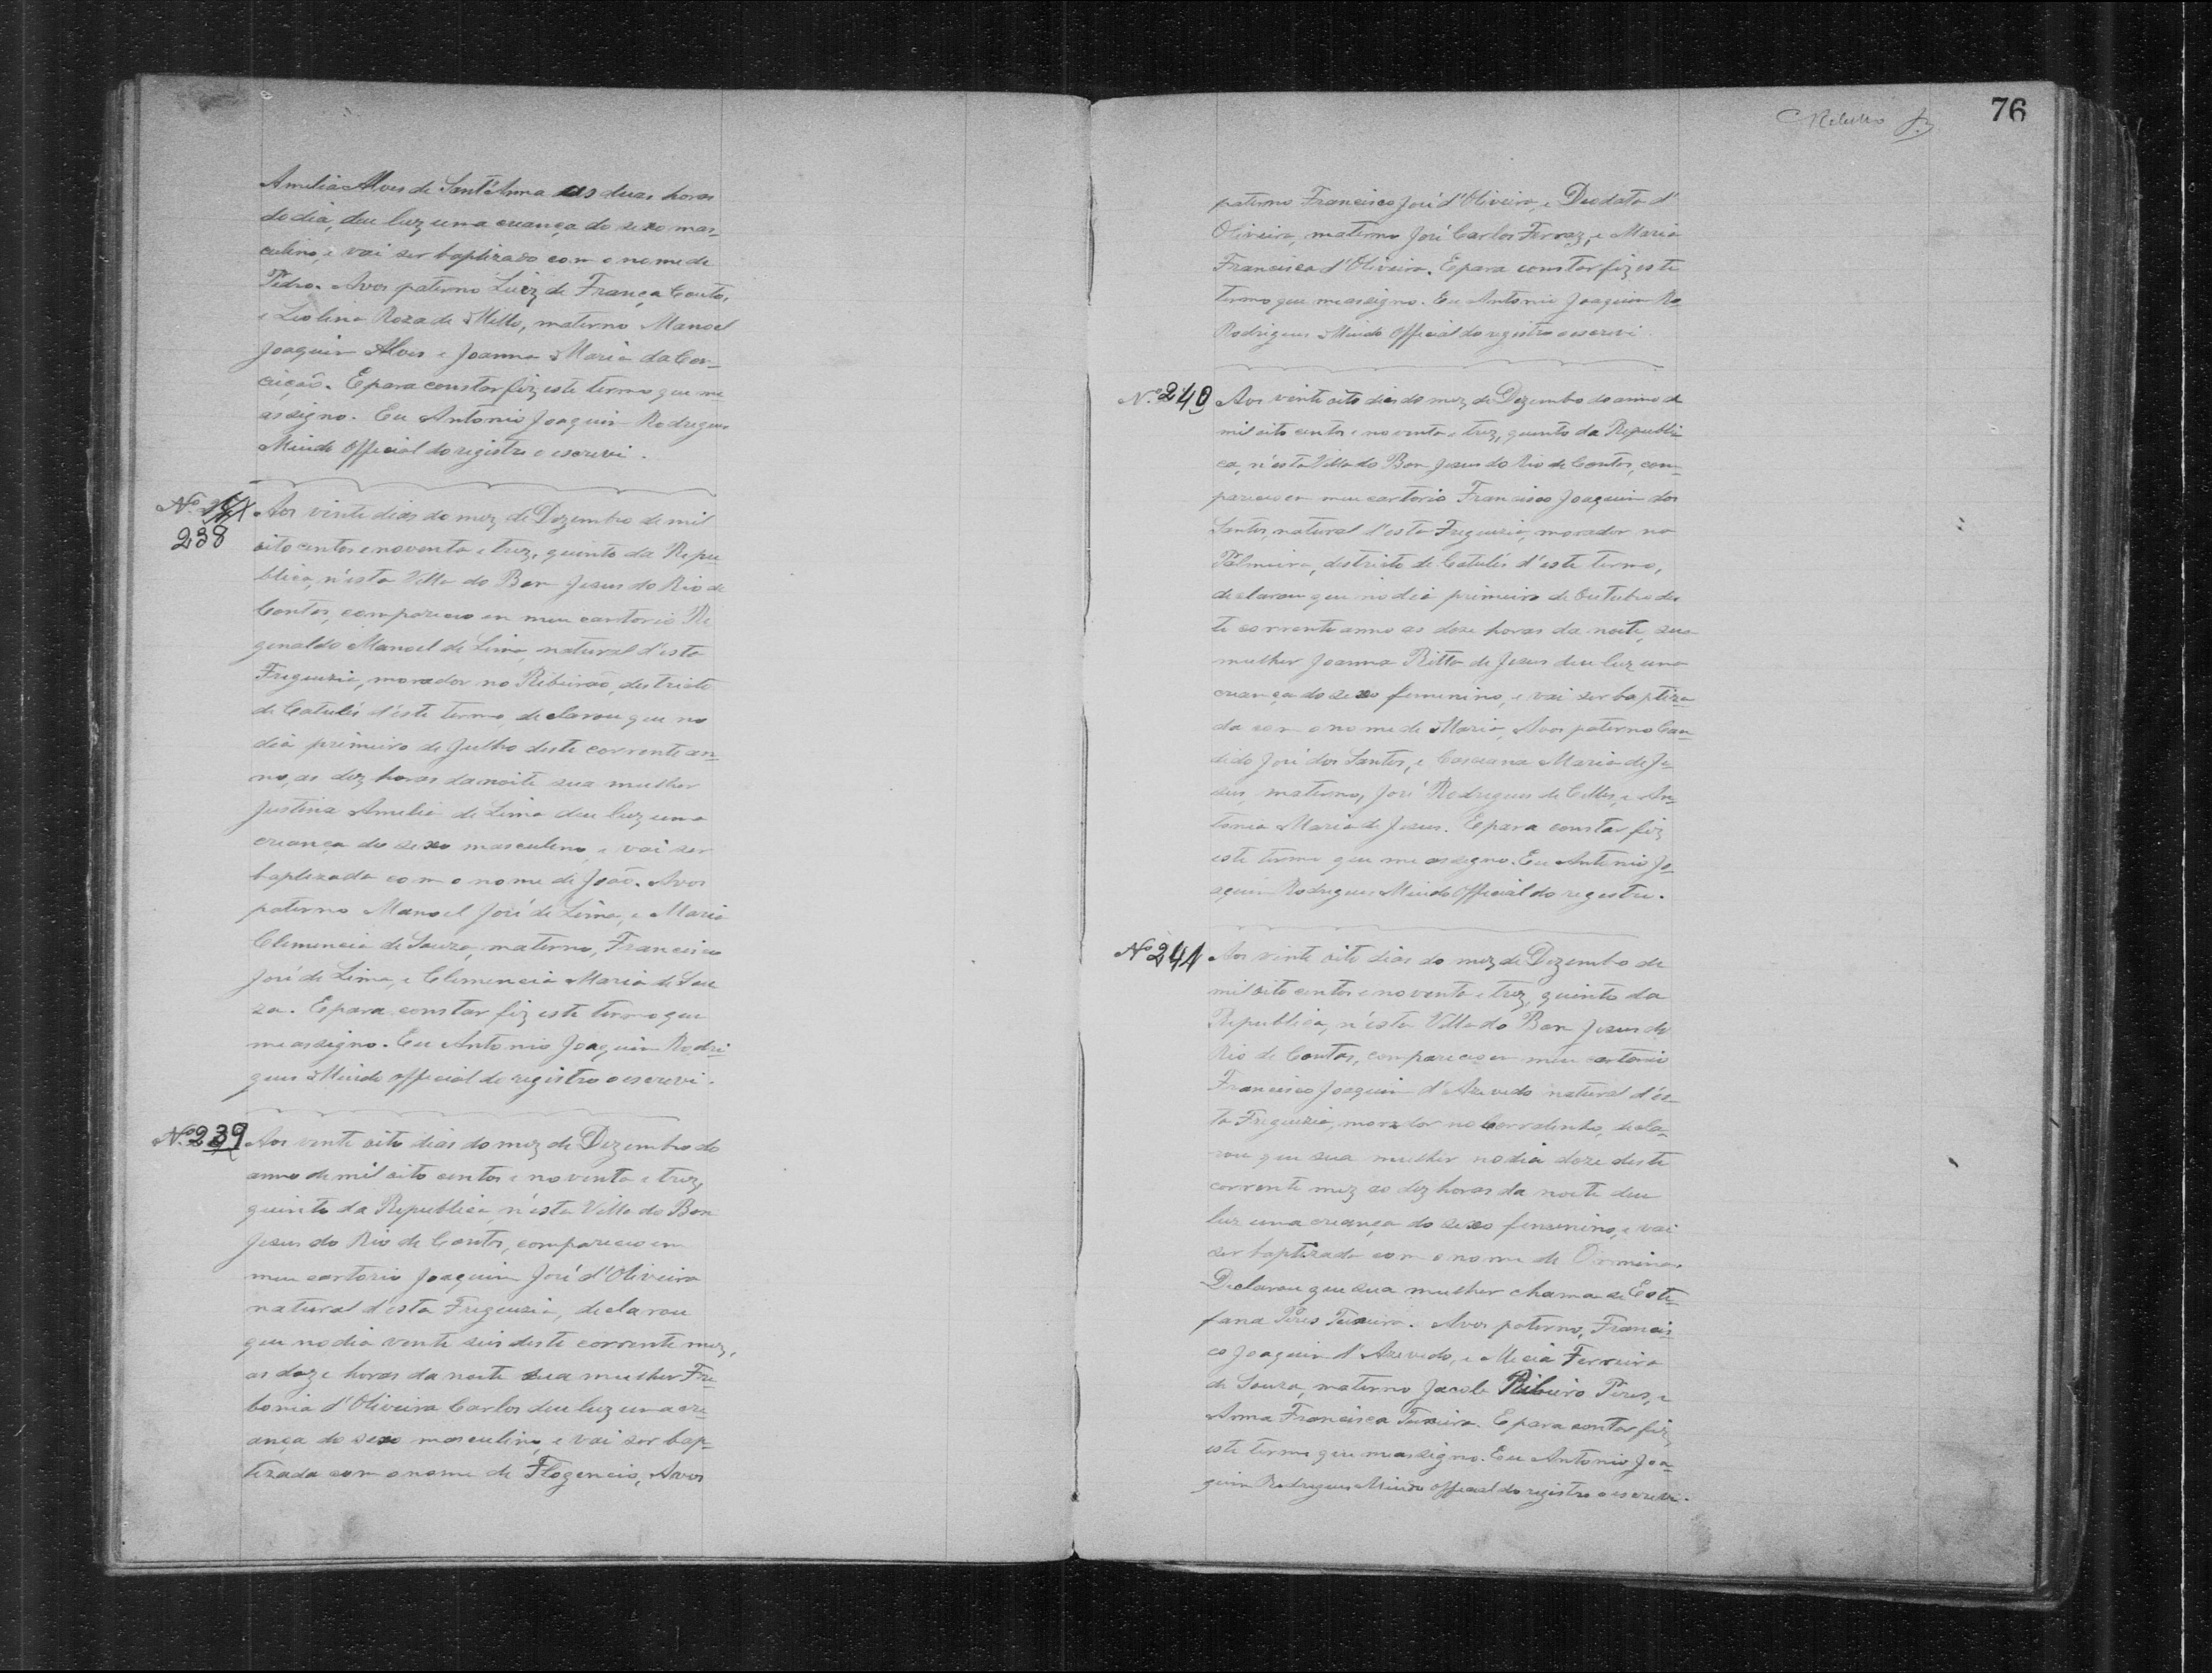 Amelia Alves de Sant'Anna as duas horas
do dia, deu luz uma creança do sexo mas-
culino, e vai ser baptizado com o nome de
Pedro. Avos paterno Luiz de França Couto,
e Leolina Roza de Mello, materno Manoel
Joaquim Alves e Joanna Maria da Con-
ceição. E para constar fiz este termo que me
assigno. Eu Antonio Joaquim Rodrigues
Official do registro o escrevi.
Nº
238
Aos vinte dias do mez de Dezembro de mil
oito centos e noventa e trez, quinto da Repu
blica, n'esta Villa do Bom Jesus do Rio de
Contas, compareceo em meu cartorio Re
genaldo Manoel de Lima, natural d'esta
Freguezia, morador no Ribeirão, destricto
de Catulés d'este termo, declarou que no
dia primeiro de Julho deste corrente an-
no, as dez horas da noite sua mulher
Justina Amelia de Lima deu luz uma
creança do sexo masculino, e vai ser
baptizada com o nome de João. Avos
paterno Manoel José de Lima, e Maria
Clemencia de Souza, materno, Francisco
José de Lima, e Clemencia Maria de Sou
za. E para constar fiz este termo que
me assigno. Eu Antonio Joaquim Rodri-
gues official do registro o escrevi.
Nº 239 Aos vinte oito dias do mez de Dezembro do
anno de mil oito centos e noventa e trez,
quinto da Republica, n'esta Villa do Bom
Jesus do Rio de Contas, compareceo em
meu cartorio Joaquim José d'Oliveira
natural d'esta Freguezia, declarou
que no dia vente seis deste corrente mez,
as doze horas da noite sua mulher Fre-
bonia d'Oliveira Carlos deu luz uma cre-
ança do sexo masculino, e vai ser bap-
tizada com o nome de Flogencio, Avos
76
paterno Francisco José d'Oliveira, e Deodata d'
Oliveira, materno José Carlos Ferraz, e Maria
Francisca d'Oliveira. E para constar fiz este
termo que me assigno. Eu Antonio Joaquim Ro
Rodrigues Official do registro o escrevi
N.º 240 Aos vinte oito dias do mez de Dezembo do anno de
mil oito centos e noventa e trez, quinto da Republi-
ca, n'esta Villa do Bom Jesus do Rio de Contas, com-
pareceo em meu cartorio Francisco Joaquim dos
Santos, natural d'esta Freguezia, morador na
Palmeira, destricto de Catulés d'este termo,
declarou que no dia primeiro de Outubro des
te corrente anno as doze horas da noite, sua
mulher Joanna Ritta de Jesus deu luz uma
creança do sexo femenino, e vai ser baptiza
da com o nome de Maria, Avos paterno Can
dido José dos Santos, e Cassiana Maria de Je-
sus, materno, José Rodrigues de Telles, e An-
tonia Maria de Jesus. E para constar fiz
este termo que me assigno. Eu Antonio Jo-
aquim Rodrigues Official do registro.
Nº 241 Aos vinte oito dias do mez de Dezembo de
mil oito centos e noventa e trez, quinto da
Republica, n'esta Villa do Bom Jesus do
Rio de Contas, compareceo em meu cartorio
Francisco Joaquim d'Azevedo natural d'es-
ta Freguezia, morador no Cerradinho, decla-
rou que sua mulher no dia doze deste
corrente mez as dez horas da noite deu
luz uma creança do sexo femenino, e vai
ser baptizada com o nome de Ormina.
Declarou que sua mulher chama se Este-
fana Peres Teixeira. Avos paterno, Francis-
co Joaquim d'Azevedo, e Ferreira
de Souza, materno Jacob Ribeiro Peres, e
Anna Francisca Teixeira. E para contar fiz
este termo que me assigno. Eu Antonio Joa-
quim Rodrigues official do registro o escrevi.